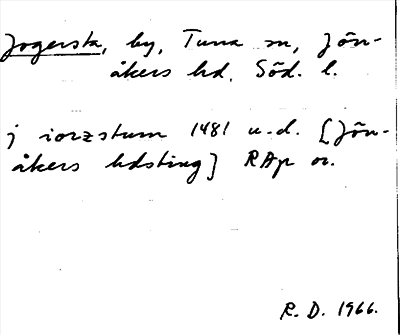 Jogersta, by, Tuna sn, Jön-
åkers hd, Söd. l.
j iorzstum 1481 u.d. [Jön-
åkers hdsting] RAp or.
R. D. 1966.